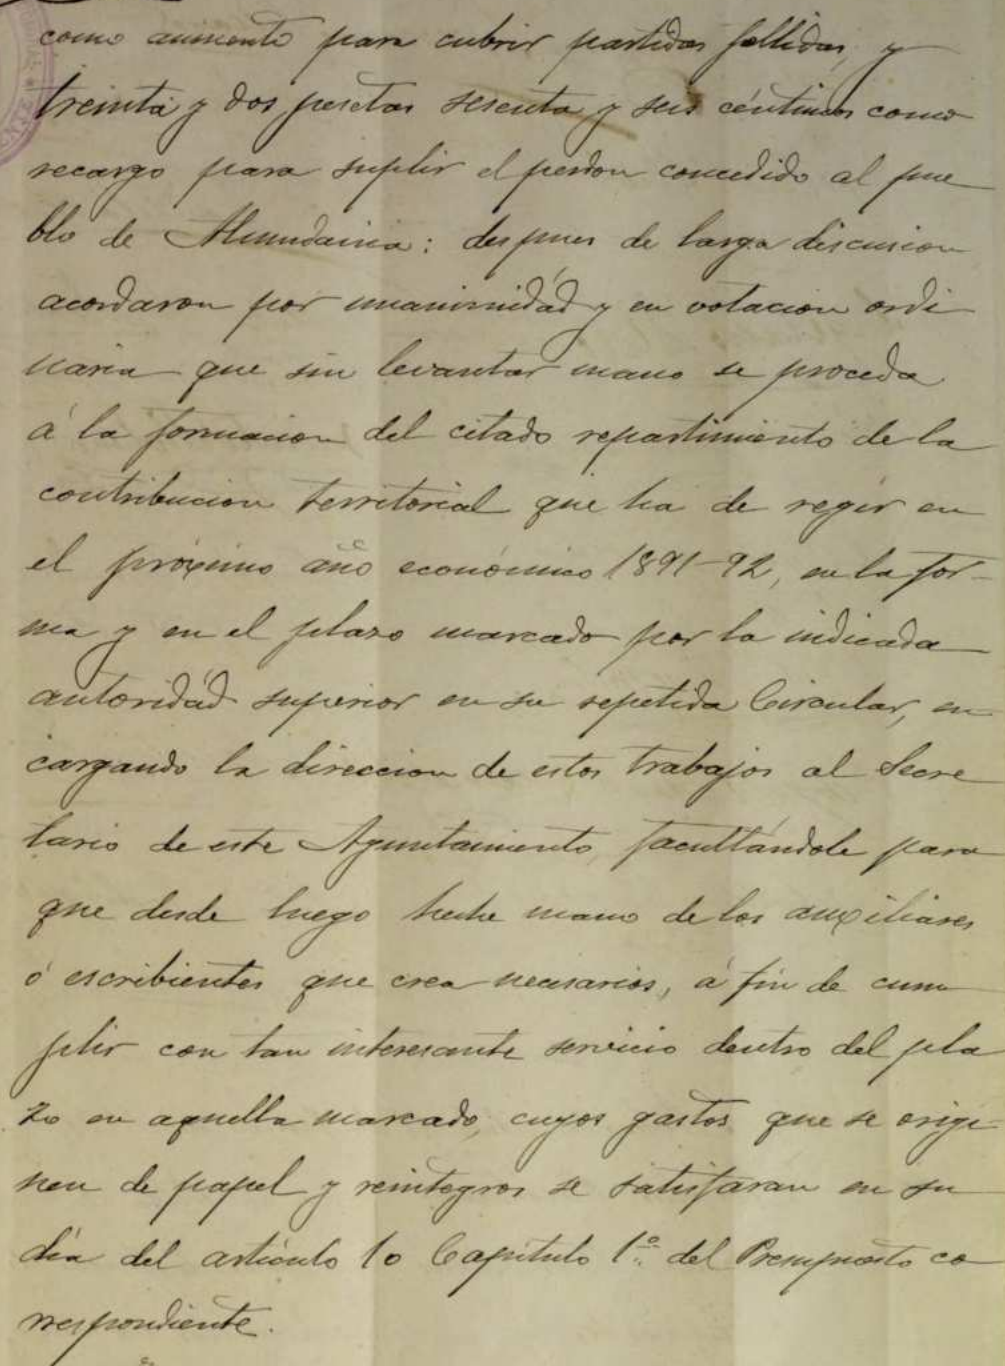 como aumento para cubrir partidas fallidas, y
treinta y dos pesetas sesenta y seis céntimos como
recargo para suplir el perdon concedido al pue
blo de Almudaina: despues de larga discusion
acordaron por unanimidád y en votacion ordi
naria que sin levantar mano se proceda
á la formacion del citado repartimiento de la
contribucion territorial que ha de regir en
el próximo año económico 1891-92, en la for-
ma y en el plazo marcado por la indicada
autoridád superior en su repetida Circular, en
cargando la direccion de estos trabajos al Secre
tario de este Ayuntamiento, facultándole para
que desde luego heche mano de los auxiliares
ó escribientes que crea necesarios, á fin de cum
plir con tan interesante servicio dentro del pla
zo en aquella marcado, cuyos gastos que se origi-
nen de papel y reintegros se satisfaran en su
dia del artículo 1o Capítulo 1º del Presupuesto co
rrespondiente.